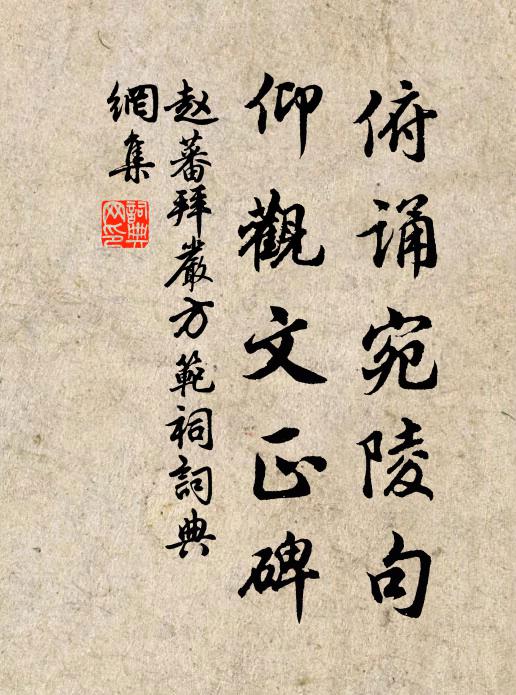 俯诵宛陵句
仰觀文正碑
赵蕃拜嚴方範祠詞典
網集
詞典
网印